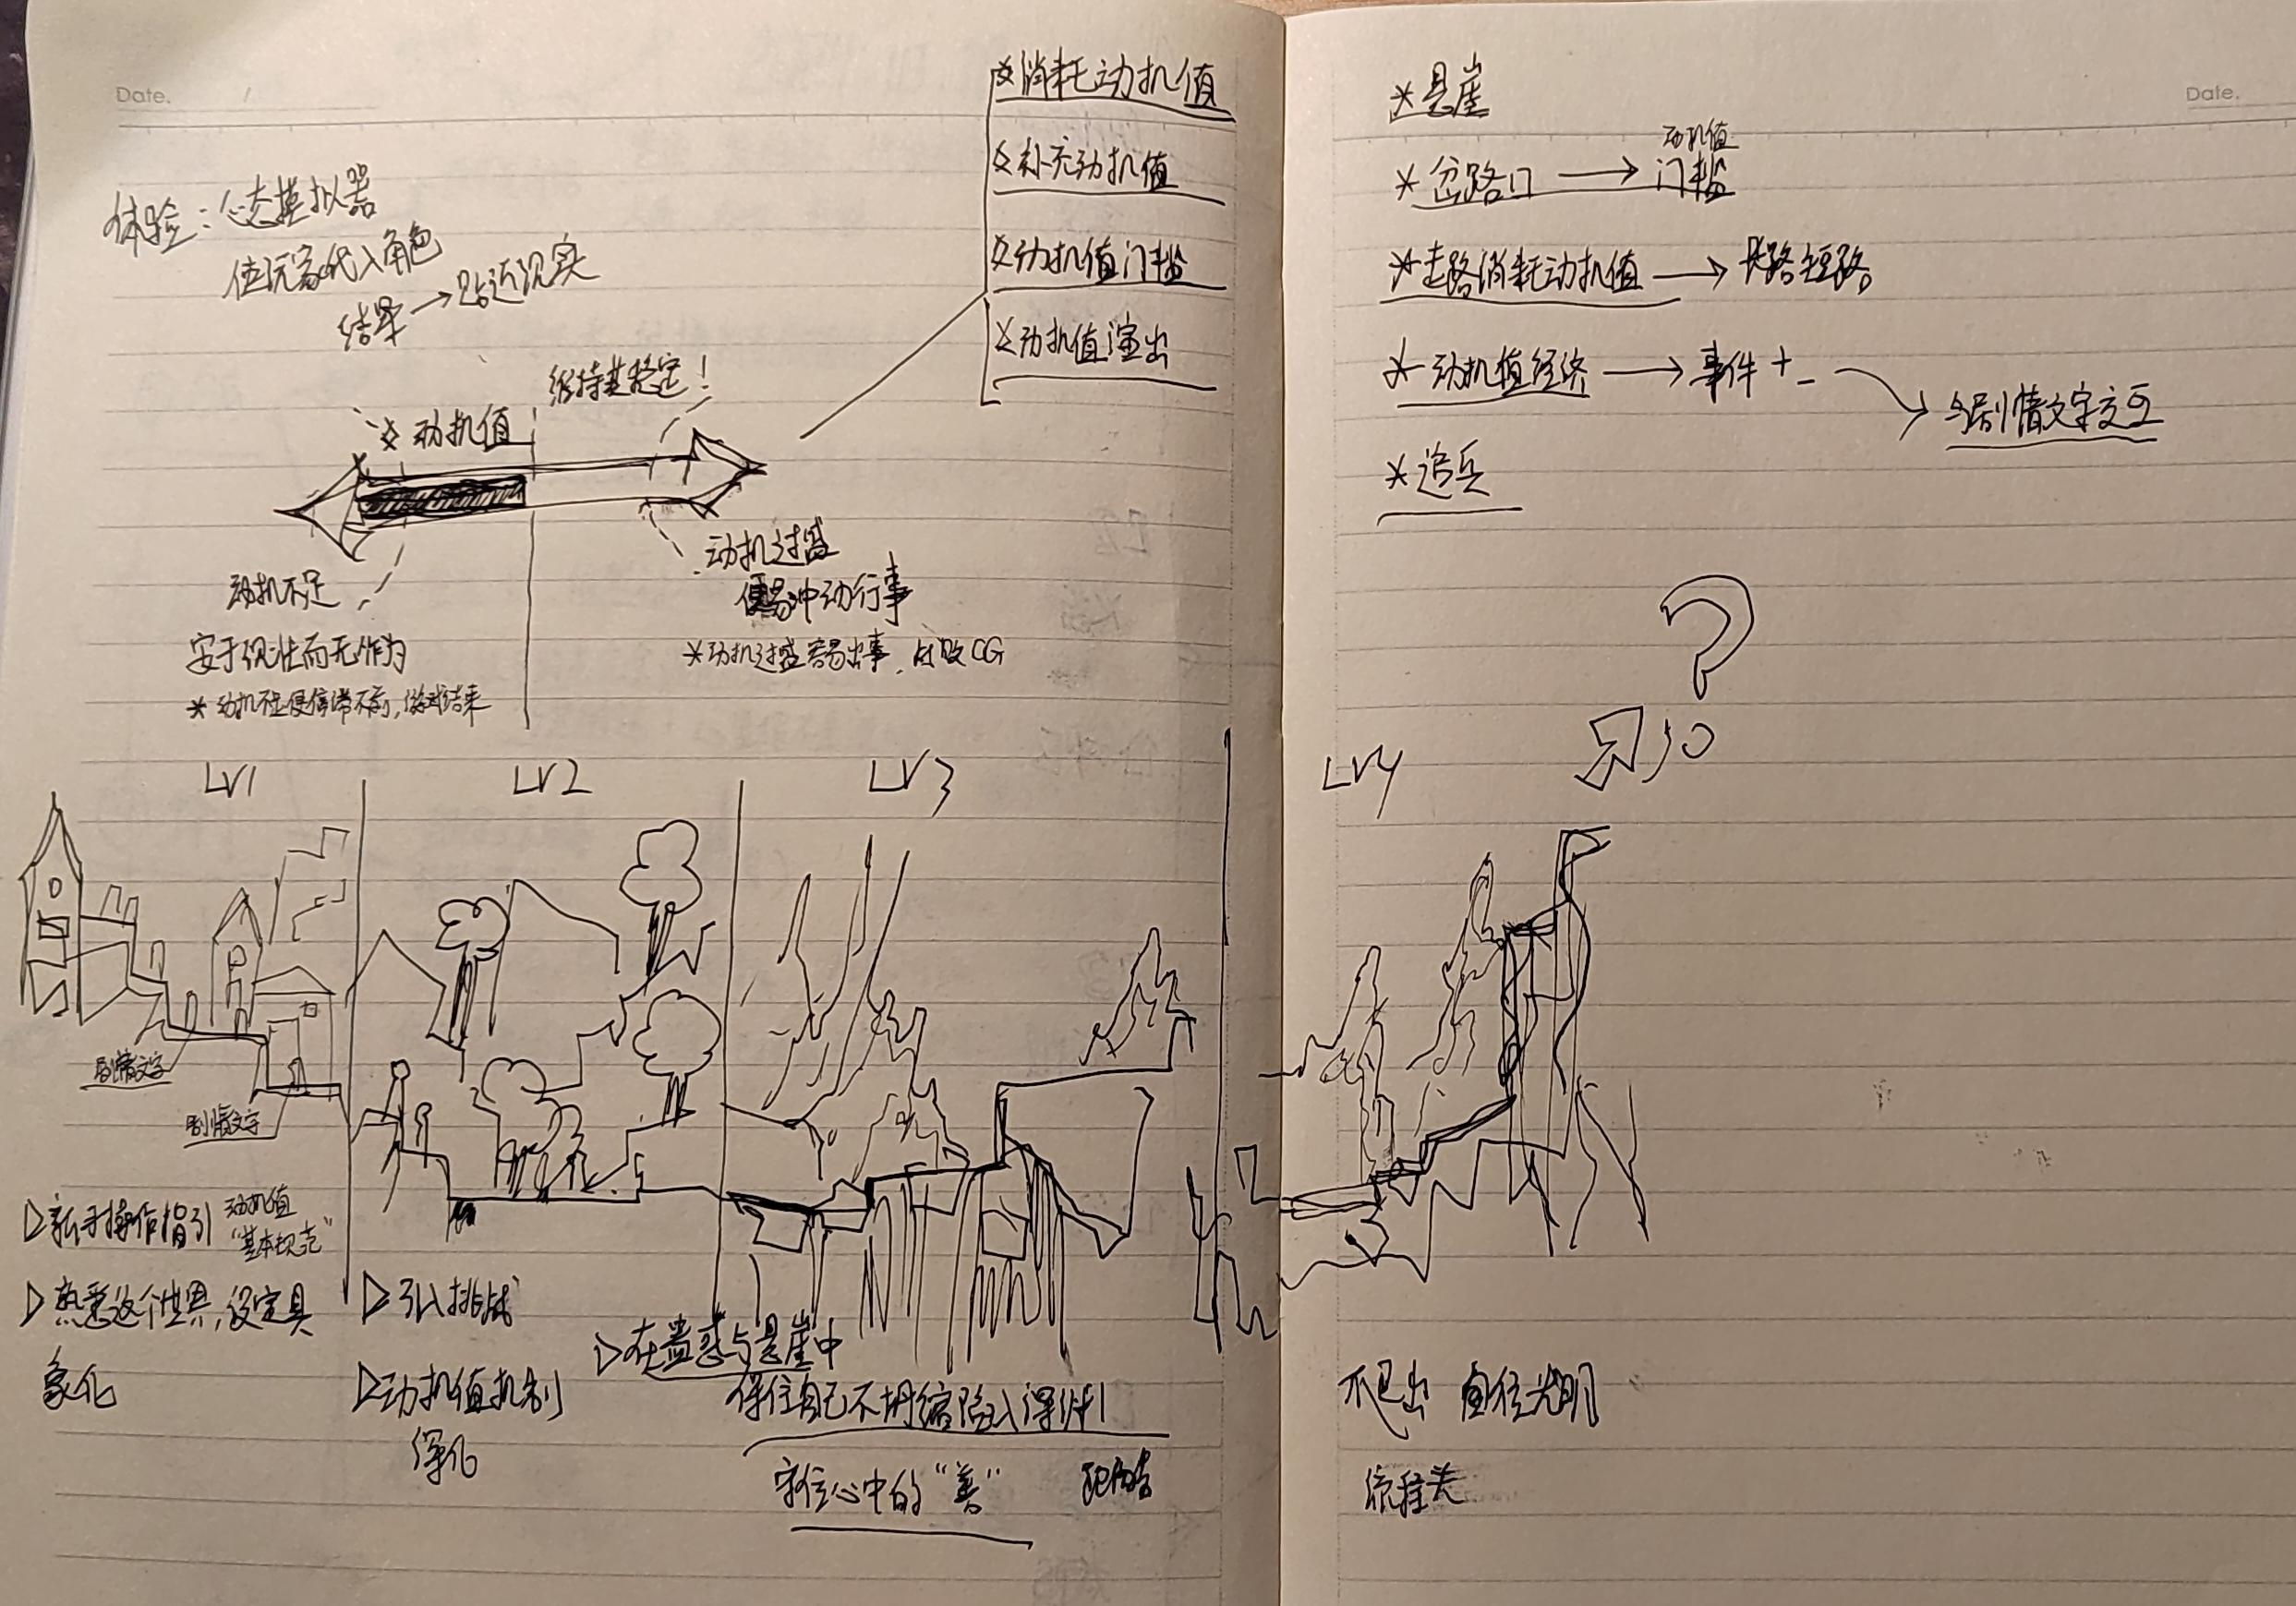 Date. /
体验：心态模拟器
使玩家代入角色
结果→贴近现实
维持其稳定！
* 动机值
动机不足
安于现状而无作为
* 动机不足便停滞不前，游戏结束
动机过盛
便易冲动行事
* 动机过盛容易出事，失败CG
* 消耗动机值
* 补充动机值
* 动机值门槛
* 动机值演出
LV1
LV2
LV3
剧情文字
剧情文字
▷新手操作指引 动机值
"基本规范"
▷熟悉这个世界，设定具
象化
▷引入挑战
▷动机值机制
深化
▷在蛊惑与悬崖中
保住自己不
守住心中的"善"
Date.
* 悬崖
* 岔路口 → 动机值门槛
* 走路消耗动机值 → 长路短路
* 动机值经济 → 事件 + -
与剧情文字交互
* 追兵
?
LV4
爬出 向往光明